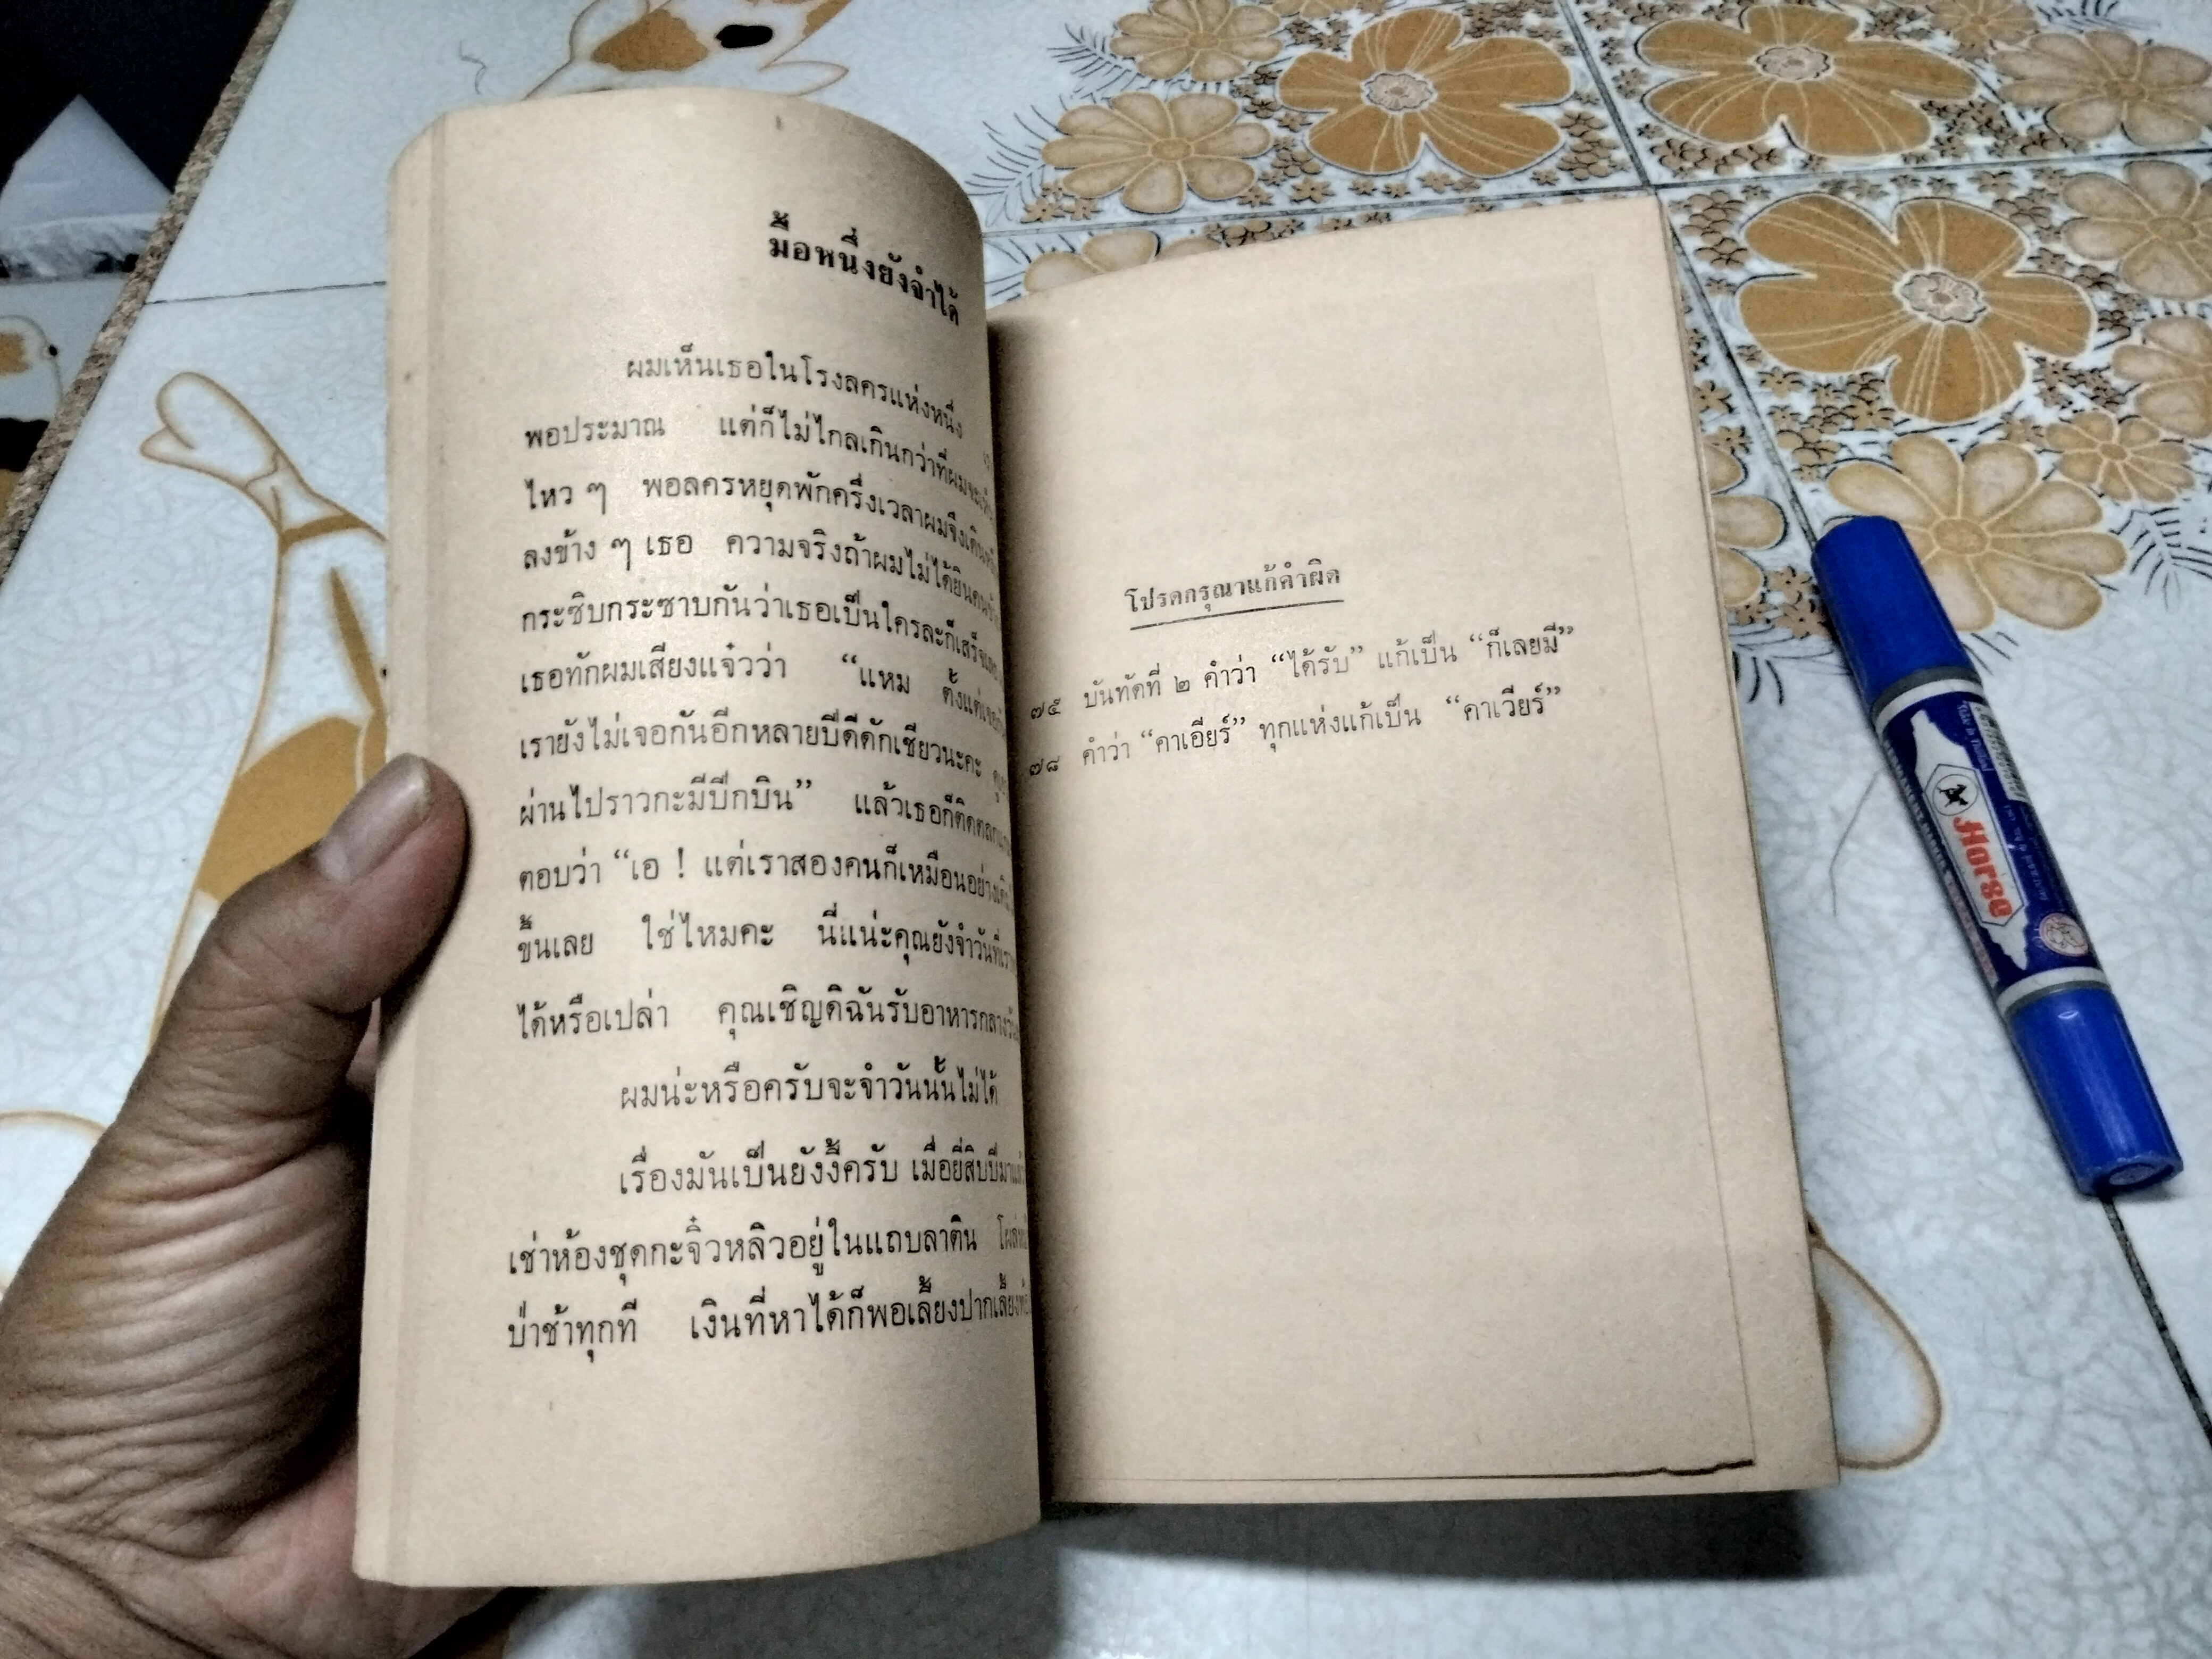 มื้อหนึ่งยังจำได้
ผมเห็นเธอในโรงลครแห่งหนึ่ง
พอประมาณ แต่ก็ไม่ไกลเกินกว่าที่ผมจะ
ไหว ๆ พอลครหยุดพักครึ่งเวลาผมจึงเดิน
ลงข้าง ๆ เธอ ความจริงถ้าผมไม่ได้ยินคน
กระซิบกระซาบกันว่าเธอเป็นใครละก็เสร็จเลย
เธอทักผมเสียงแจ๋วว่า “แหม ตั้งแต่เจอ
เรายังไม่เจอกันอีกหลายปีดีดักเชียวนะคะ
ผ่านไปราวกะมีปีกบิน” แล้วเธอก็ติดตลก
ตอบว่า “เอ ! แต่เราสองคนก็เหมือนอย่างเดิม
ขึ้นเลย ใช่ไหมคะ นี่แน่ะคุณยังจำวันที่เรา
ได้หรือเปล่า คุณเชิญดิฉันรับอาหารกลางวัน
ผมน่ะหรือครับจะจำวันนั้นไม่ได้
เรื่องมันเป็นยังงี้ครับ เมื่อยี่สิบปีมาแล้ว
เช่าห้องชุดกะจิ๋วหลิวอยู่ในแถบลาติน
ป่าช้าทุกที เงินที่หาได้ก็พอเลี้ยงปากเลี้ยง
โปรดกรุณาแก้คำผิด
๗๕ บันทัดที่ ๒ คำว่า “ได้รับ” แก้เป็น “ก็เลยมี”
๗๘ คำว่า “คาเอียร์” ทุกแห่งแก้เป็น “คาเวียร์”
Horse